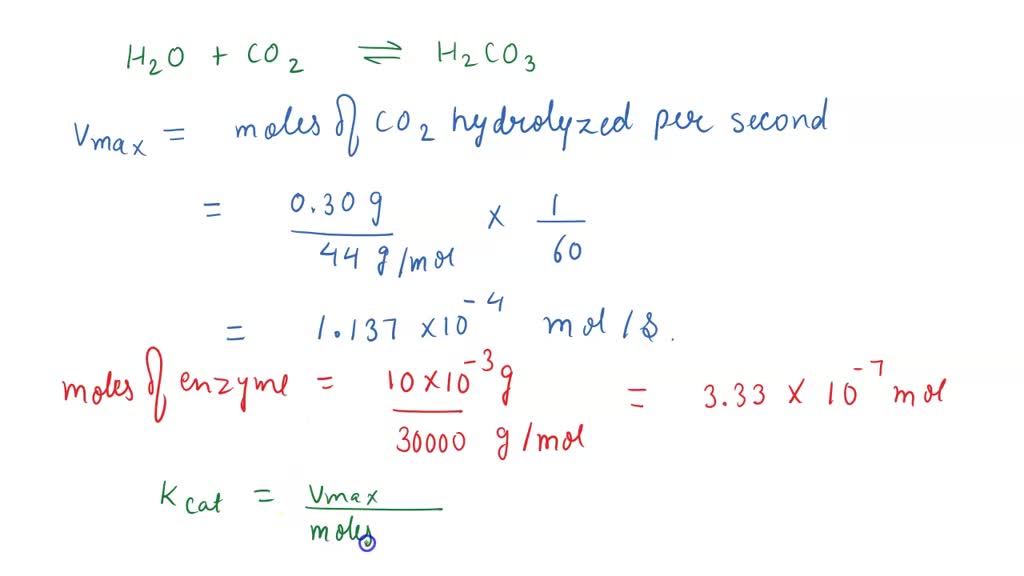 H₂O + CO₂ ⇌ H₂CO₃
Vmax = moles of CO₂ hydrolyzed per second
= 0.30 g / 44 g/mol × 1 / 60
= 1.137 × 10⁻⁴ mol/s.
moles of enzyme = 10 × 10⁻³ g / 30000 g/mol = 3.33 × 10⁻⁷ mol
Kcat = Vmax / moles